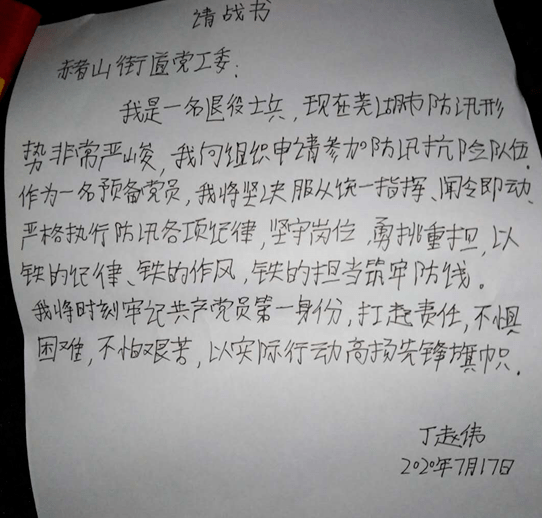 请战书
赭山街道党工委:
我是一名退役士兵,现在芜湖市防讯形
势非常严峻,我向组织申请参加防讯抗险队伍.
作为一名预备党员,我将坚决服从统一指挥、闻令即动、
严格执行防讯各项纪律,坚守岗位,勇挑重担,以
铁的纪律、铁的作风,铁的担当筑牢防线。
我将时刻牢记共产党员第一身份,扛起责任,不惧
困难,不怕艰苦,以实际行动高扬先锋旗帜.
丁赵伟
2020年7月17日